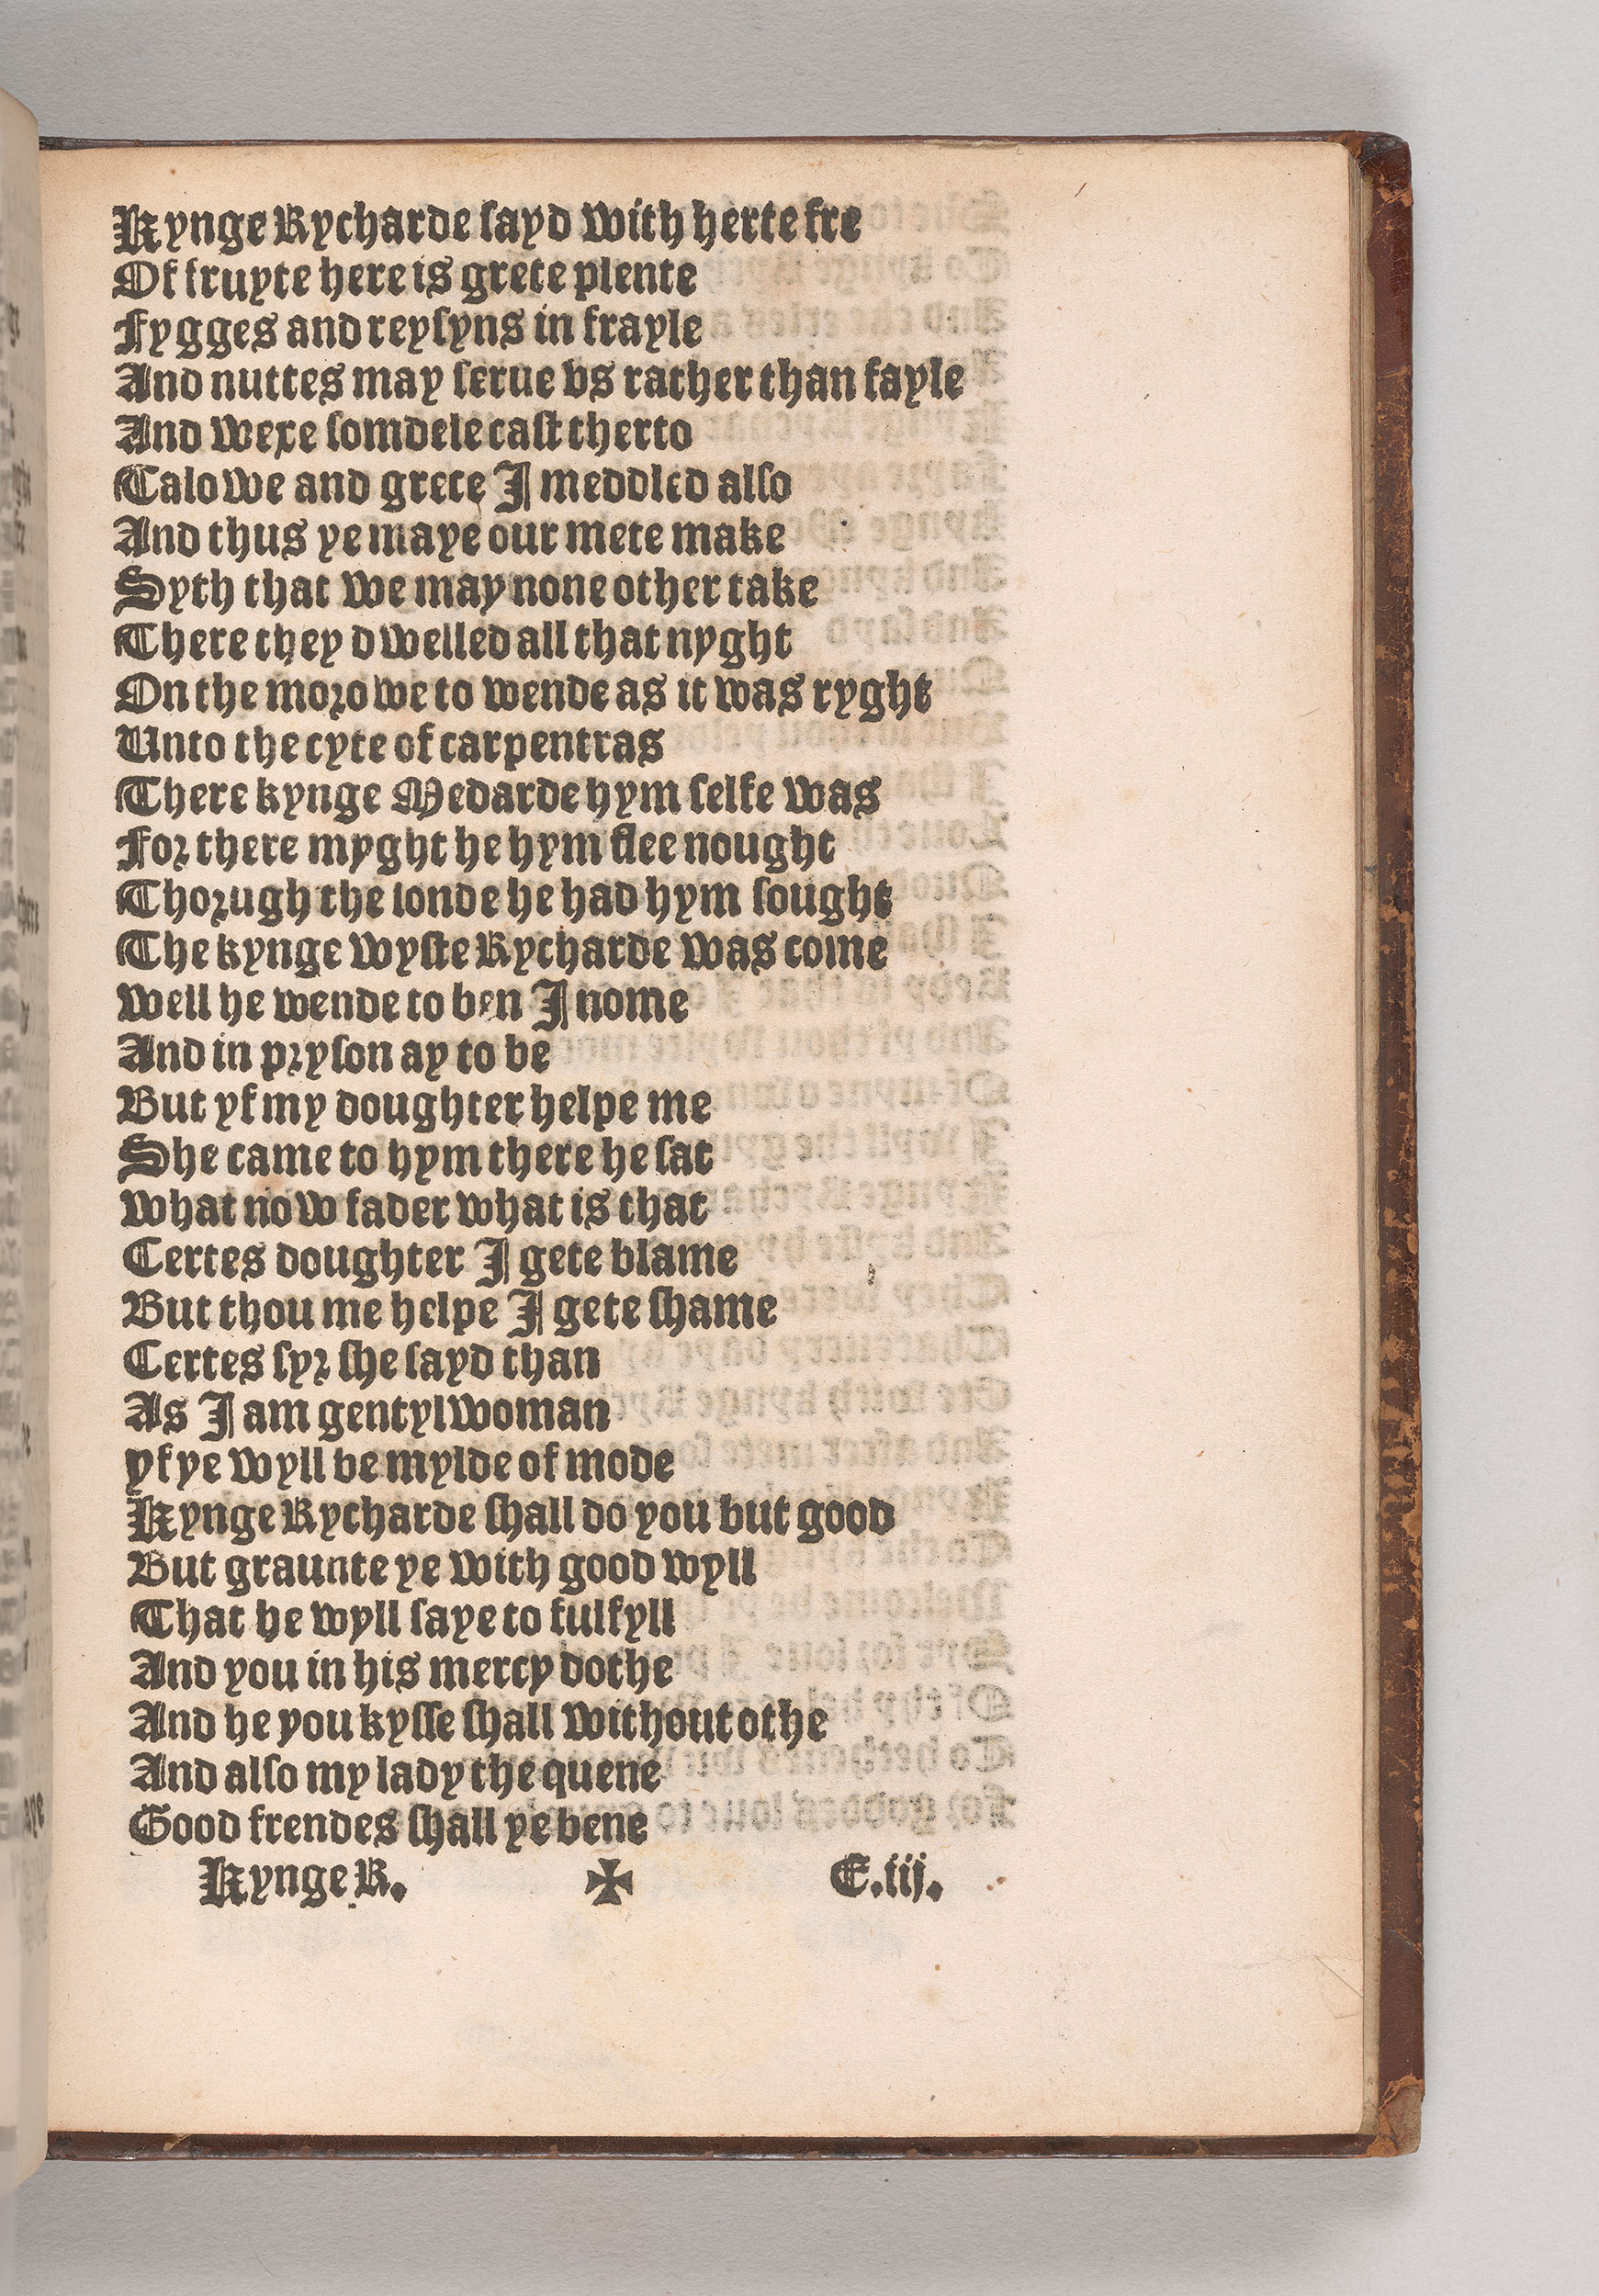 Kynge Rycharde sayd with herte fre
Of fruyte here is grete plente
Fygges and reysyns in frayle
And nuttes may serue vs rather than fayle
And wexe somdele cast therto
Talowe and grece I meddled also
And thus ye maye our mete make
Syth that we may none other take
There they dwelled all that nyght
On the morowe to wende as it was ryght
Unto the cyte of carpentras
There kynge Medarde hym selfe was
For there myght he hym flee nought
Thorugh the londe he had hym sought
The kynge wyste Rycharde was come
Well he wende to ben I nome
And in pryson ay to be
But yf my doughter helpe me
She came to hym there he sat
What now fader what is that
Certes doughter I gete blame
But thou me helpe I gete shame
Certes syr she sayd than
As I am gentylwoman
yf ye wyll be mylde of mode
Kynge Rycharde shall do you but good
But graunte ye with good wyll
That he wyll saye to fulfyll
And you in his mercy dothe
And he you kysse shall without othe
And also my lady the quene
Good frendes shall ye bene
Kynge R. ✠ E.iij.